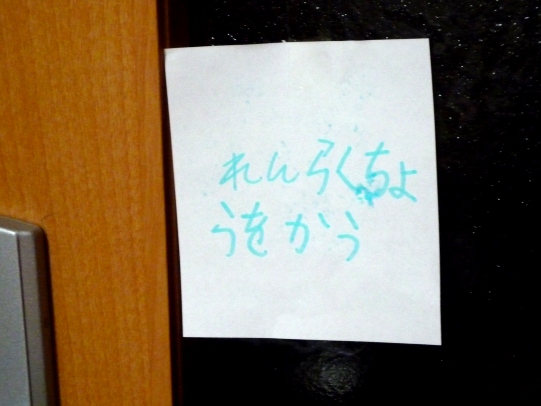 れんらくちょ
うをかう